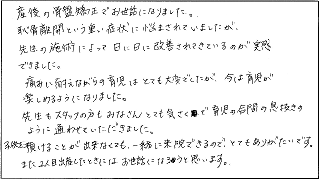 産後の骨盤矯正でお世話になりました。
恥骨離開という重い症状に悩まされていましたが、
先生の施術によって日に日に改善されてきているのが実感
できました。
痛みに耐えながらの育児はとても大変でしたが、今は育児が
楽しめるようになりました。
先生もスタッフの方もみなさんとても気さくで育児の合間の息抜きの
ように通わせていただきました。
子供を預けることが出来なくても、一緒に来院できるので、とてもありがたいです。
また2人目出産したときにはお世話になろうと思います。